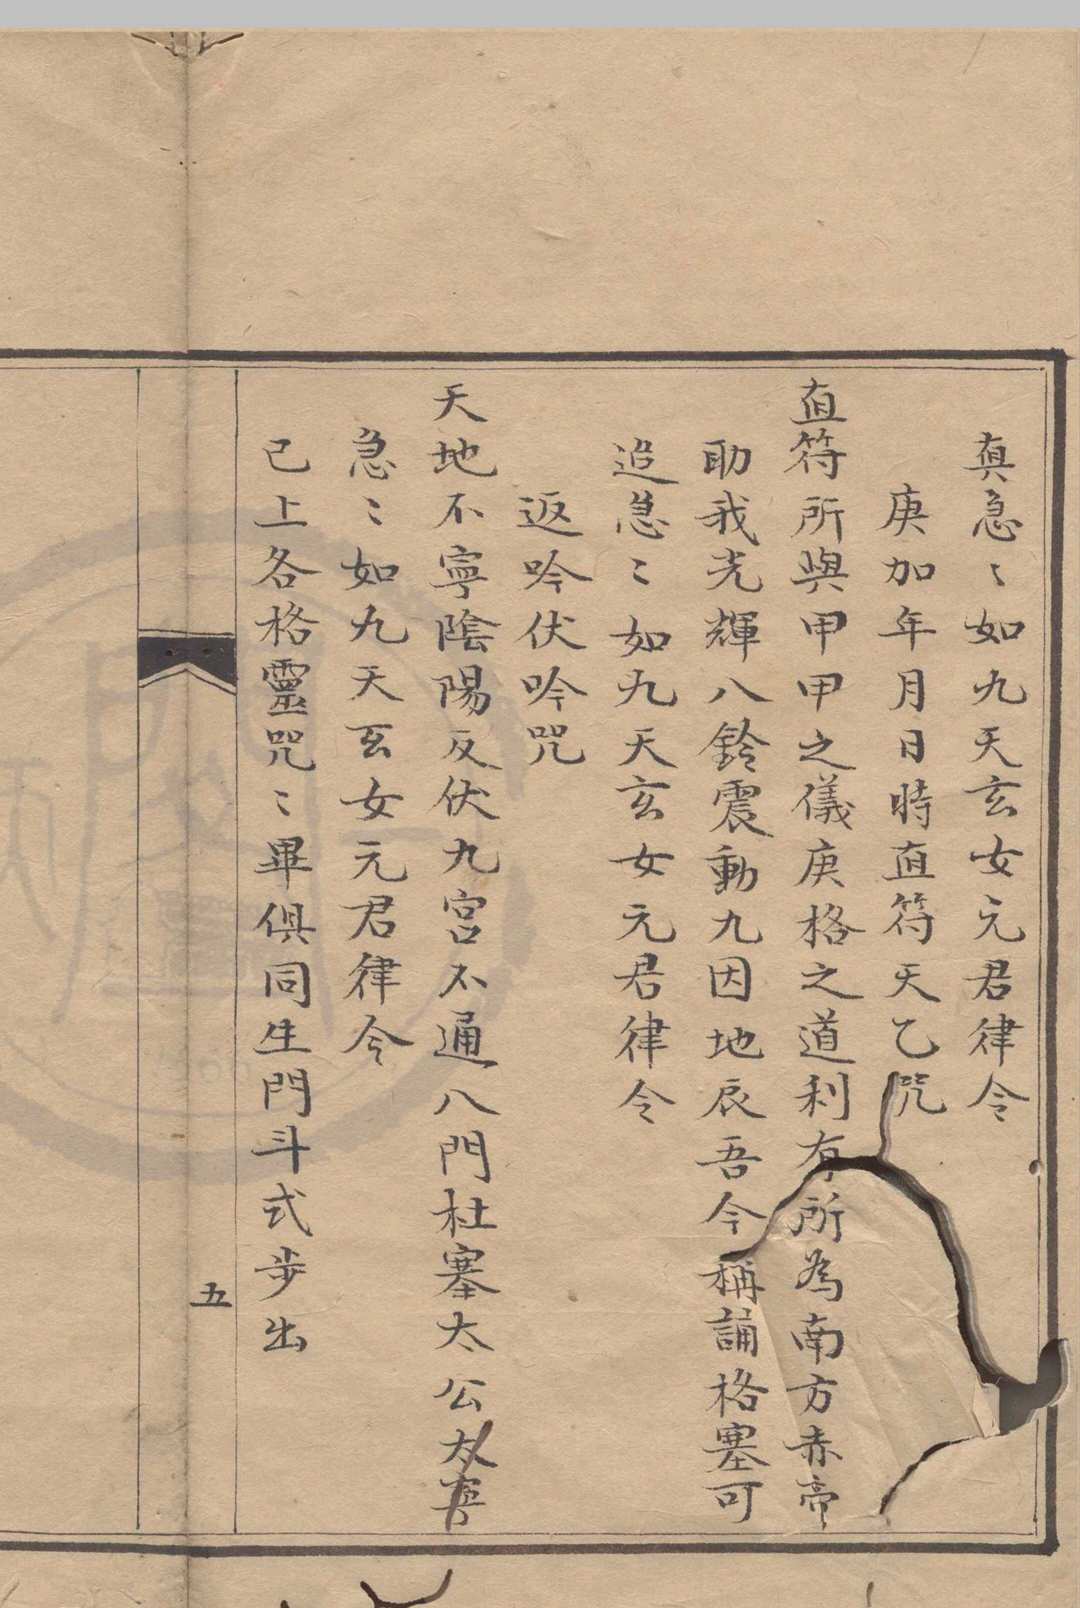 真急〻如九天玄女元君律令
庚加年月日時直符天乙咒
直符所與甲甲之儀庚格之道利有所為南方赤帝
助我光輝八鈴震動九因地辰吾今稱誦格塞可
追急〻如九天玄女元君律令
返吟伏吟咒
天地不寧陰陽反伏九宮不通八門杜塞太公太
急〻如九天玄女元君律令
已上各格靈咒〻畢俱同生門斗式步出
五